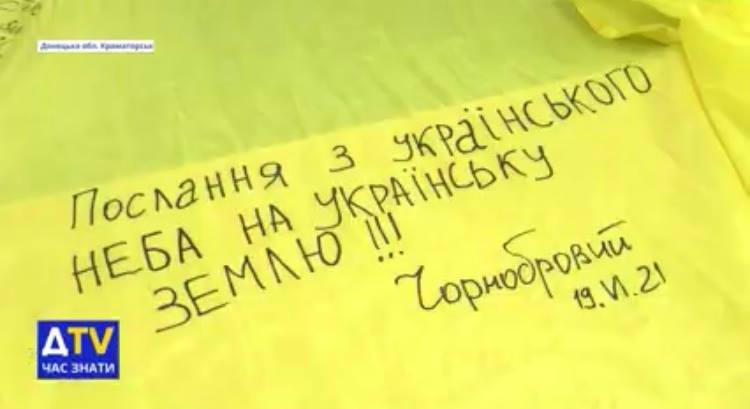 Донецька обл. Краматорськ
Послання з українського
НЕБА НА УКРАЇНСЬКУ
ЗЕМЛЮ!!!
Чорнобровий
19.VI.21
ДTV
ЧАС ЗНАТИ